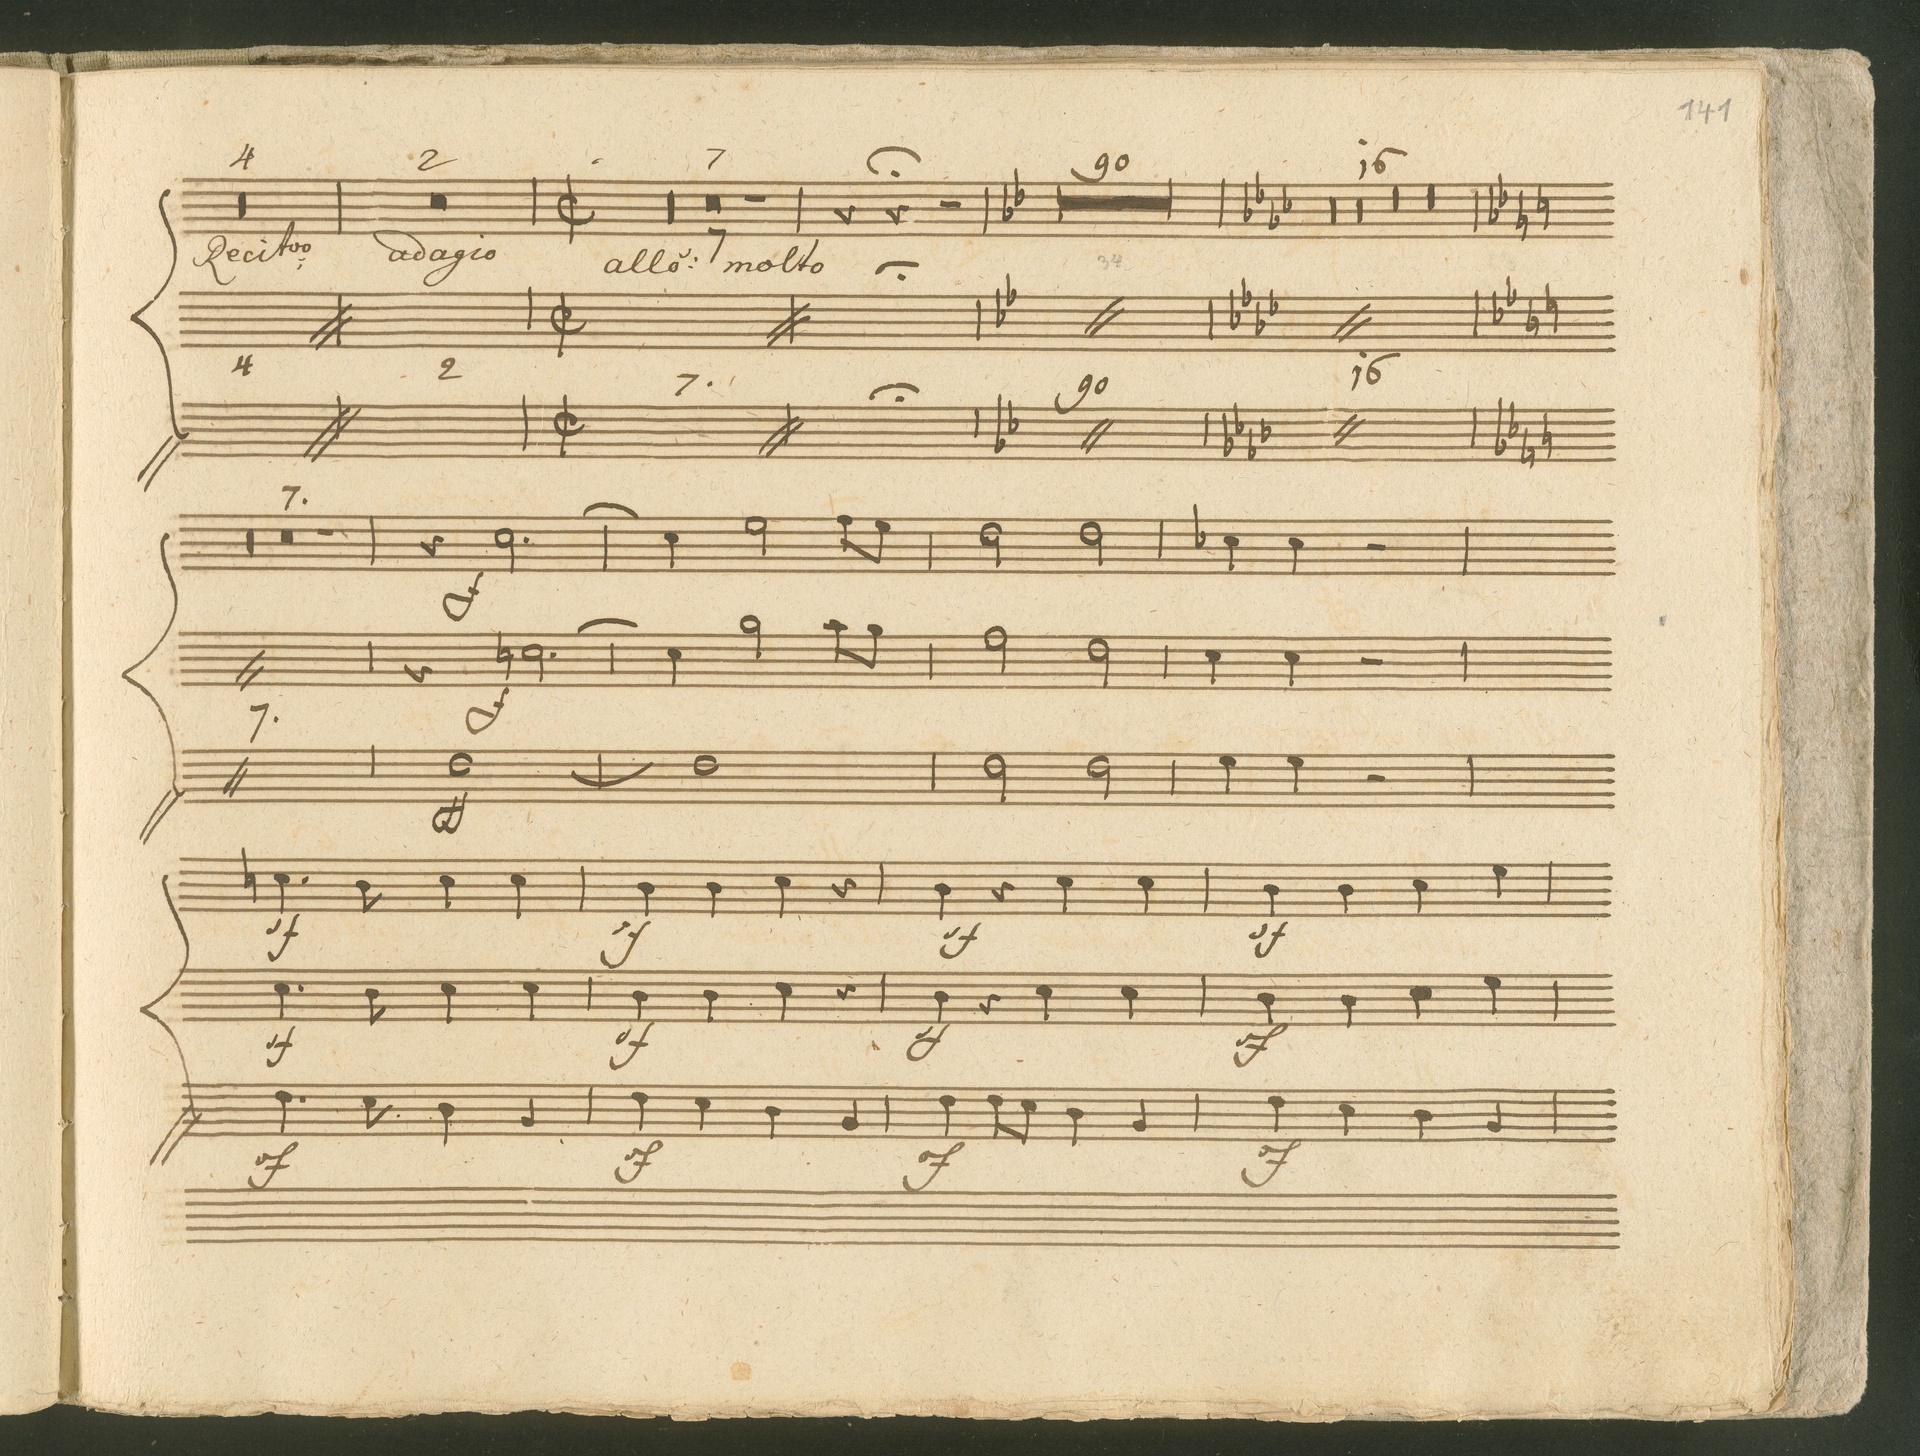 141
4 2 7 90 i6
Recit.vo adagio allo: 7 molto
34
4 2 7. 90 i6
7.
7.
sf sf sf sf
sf sf sf sf
sf sf sf sf